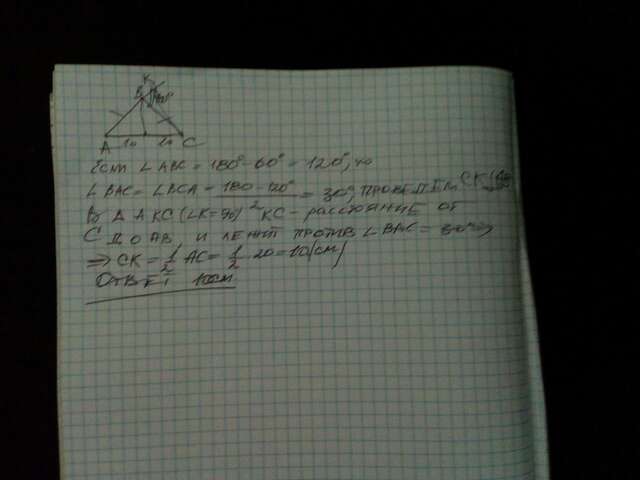 K
B
A 10 10 C
Если ∠ABC = 180° - 60° = 120°, то
∠BAC = ∠BCA = 180 - 120° / 2 = 30°, проведём CK
В Δ AKC (∠K = 90) KC - расстояние от
C до AB, и лежит против ∠BAC = 30°
⇒ CK = 1/2 AC = 1/2 20 = 10 (см)
Ответ: 10см